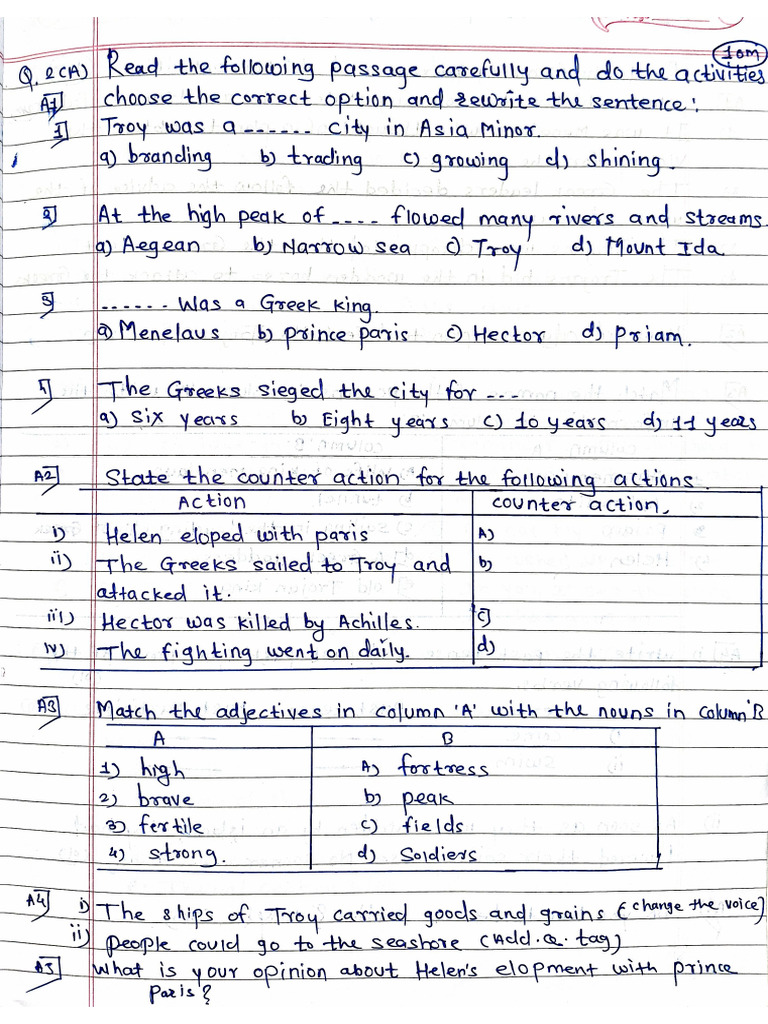 10M
Q.2(A) Read the following passage carefully and do the activities
A1) choose the correct option and rewrite the sentence:
1) Troy was a ------ city in Asia Minor.
a) branding b) trading c) growing d) shining.
2) At the high peak of ---- flowed many rivers and streams.
a) Aegean b) Narrow sea c) Troy d) Mount Ida
3) ------ Was a Greek king.
a) Menelaus b) prince paris c) Hector d) priam.
4) The Greeks sieged the city for ---
a) Six years b) Eight years c) 10 years d) 11 years
A2) State the counter action for the following actions.
Action counter action,
i) Helen eloped with paris A)
ii) The Greeks sailed to Troy and b)
attacked it.
iii) Hector was killed by Achilles. c)
iv) The fighting went on daily. d)
A3) Match the adjectives in column 'A' with the nouns in column 'B
A B
1) high A) fortress
2) brave b) peak
3) fertile c) fields
4) strong. d) Soldiers
A4) i) The ships of Troy carried goods and grains (change the voice)
ii) people could go to the seashore (Add. Q. tag)
A5) What is your opinion about Helen's elopment with prince
paris?